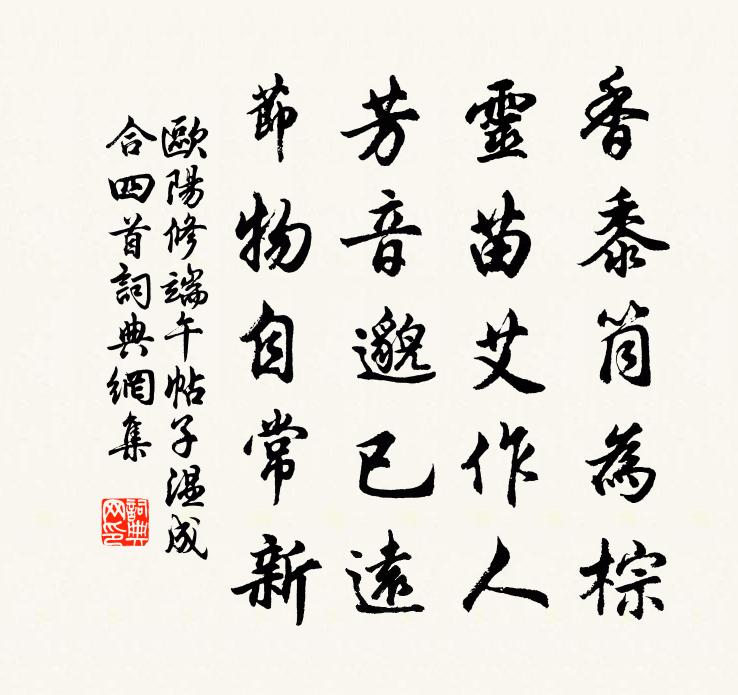 香黍筒為棕
靈苗艾作人
芳音邈已遠
節物自常新
歐陽修端午帖子溫成
合四首詞典網集
詞典网印